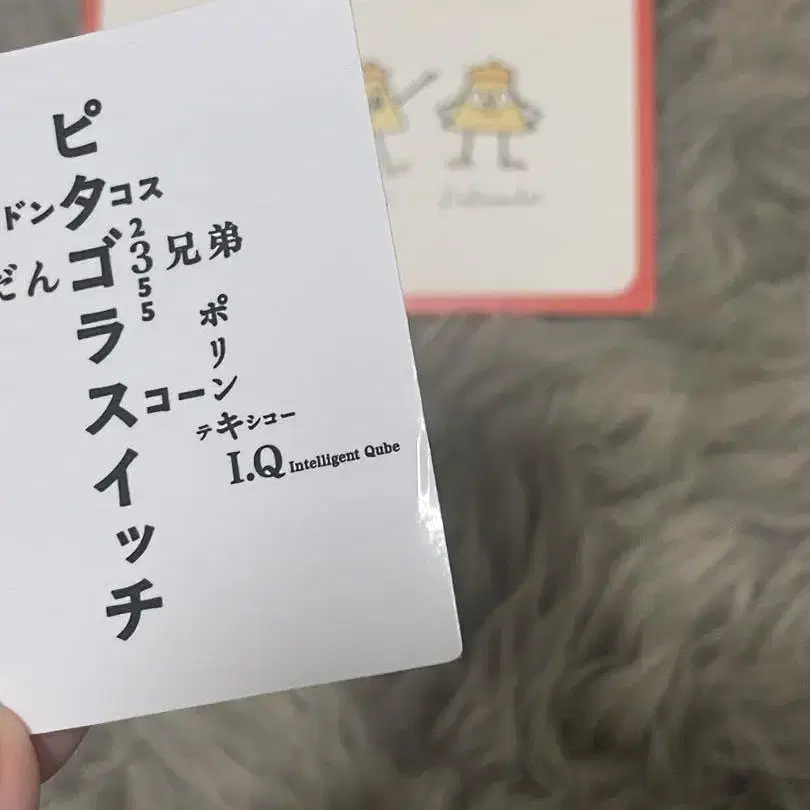 ピタゴラスイッチ
ドンタコス
だんご3兄弟
2355
ポリンキー
スコーン
テキシコー
I.Q Intelligent Qube